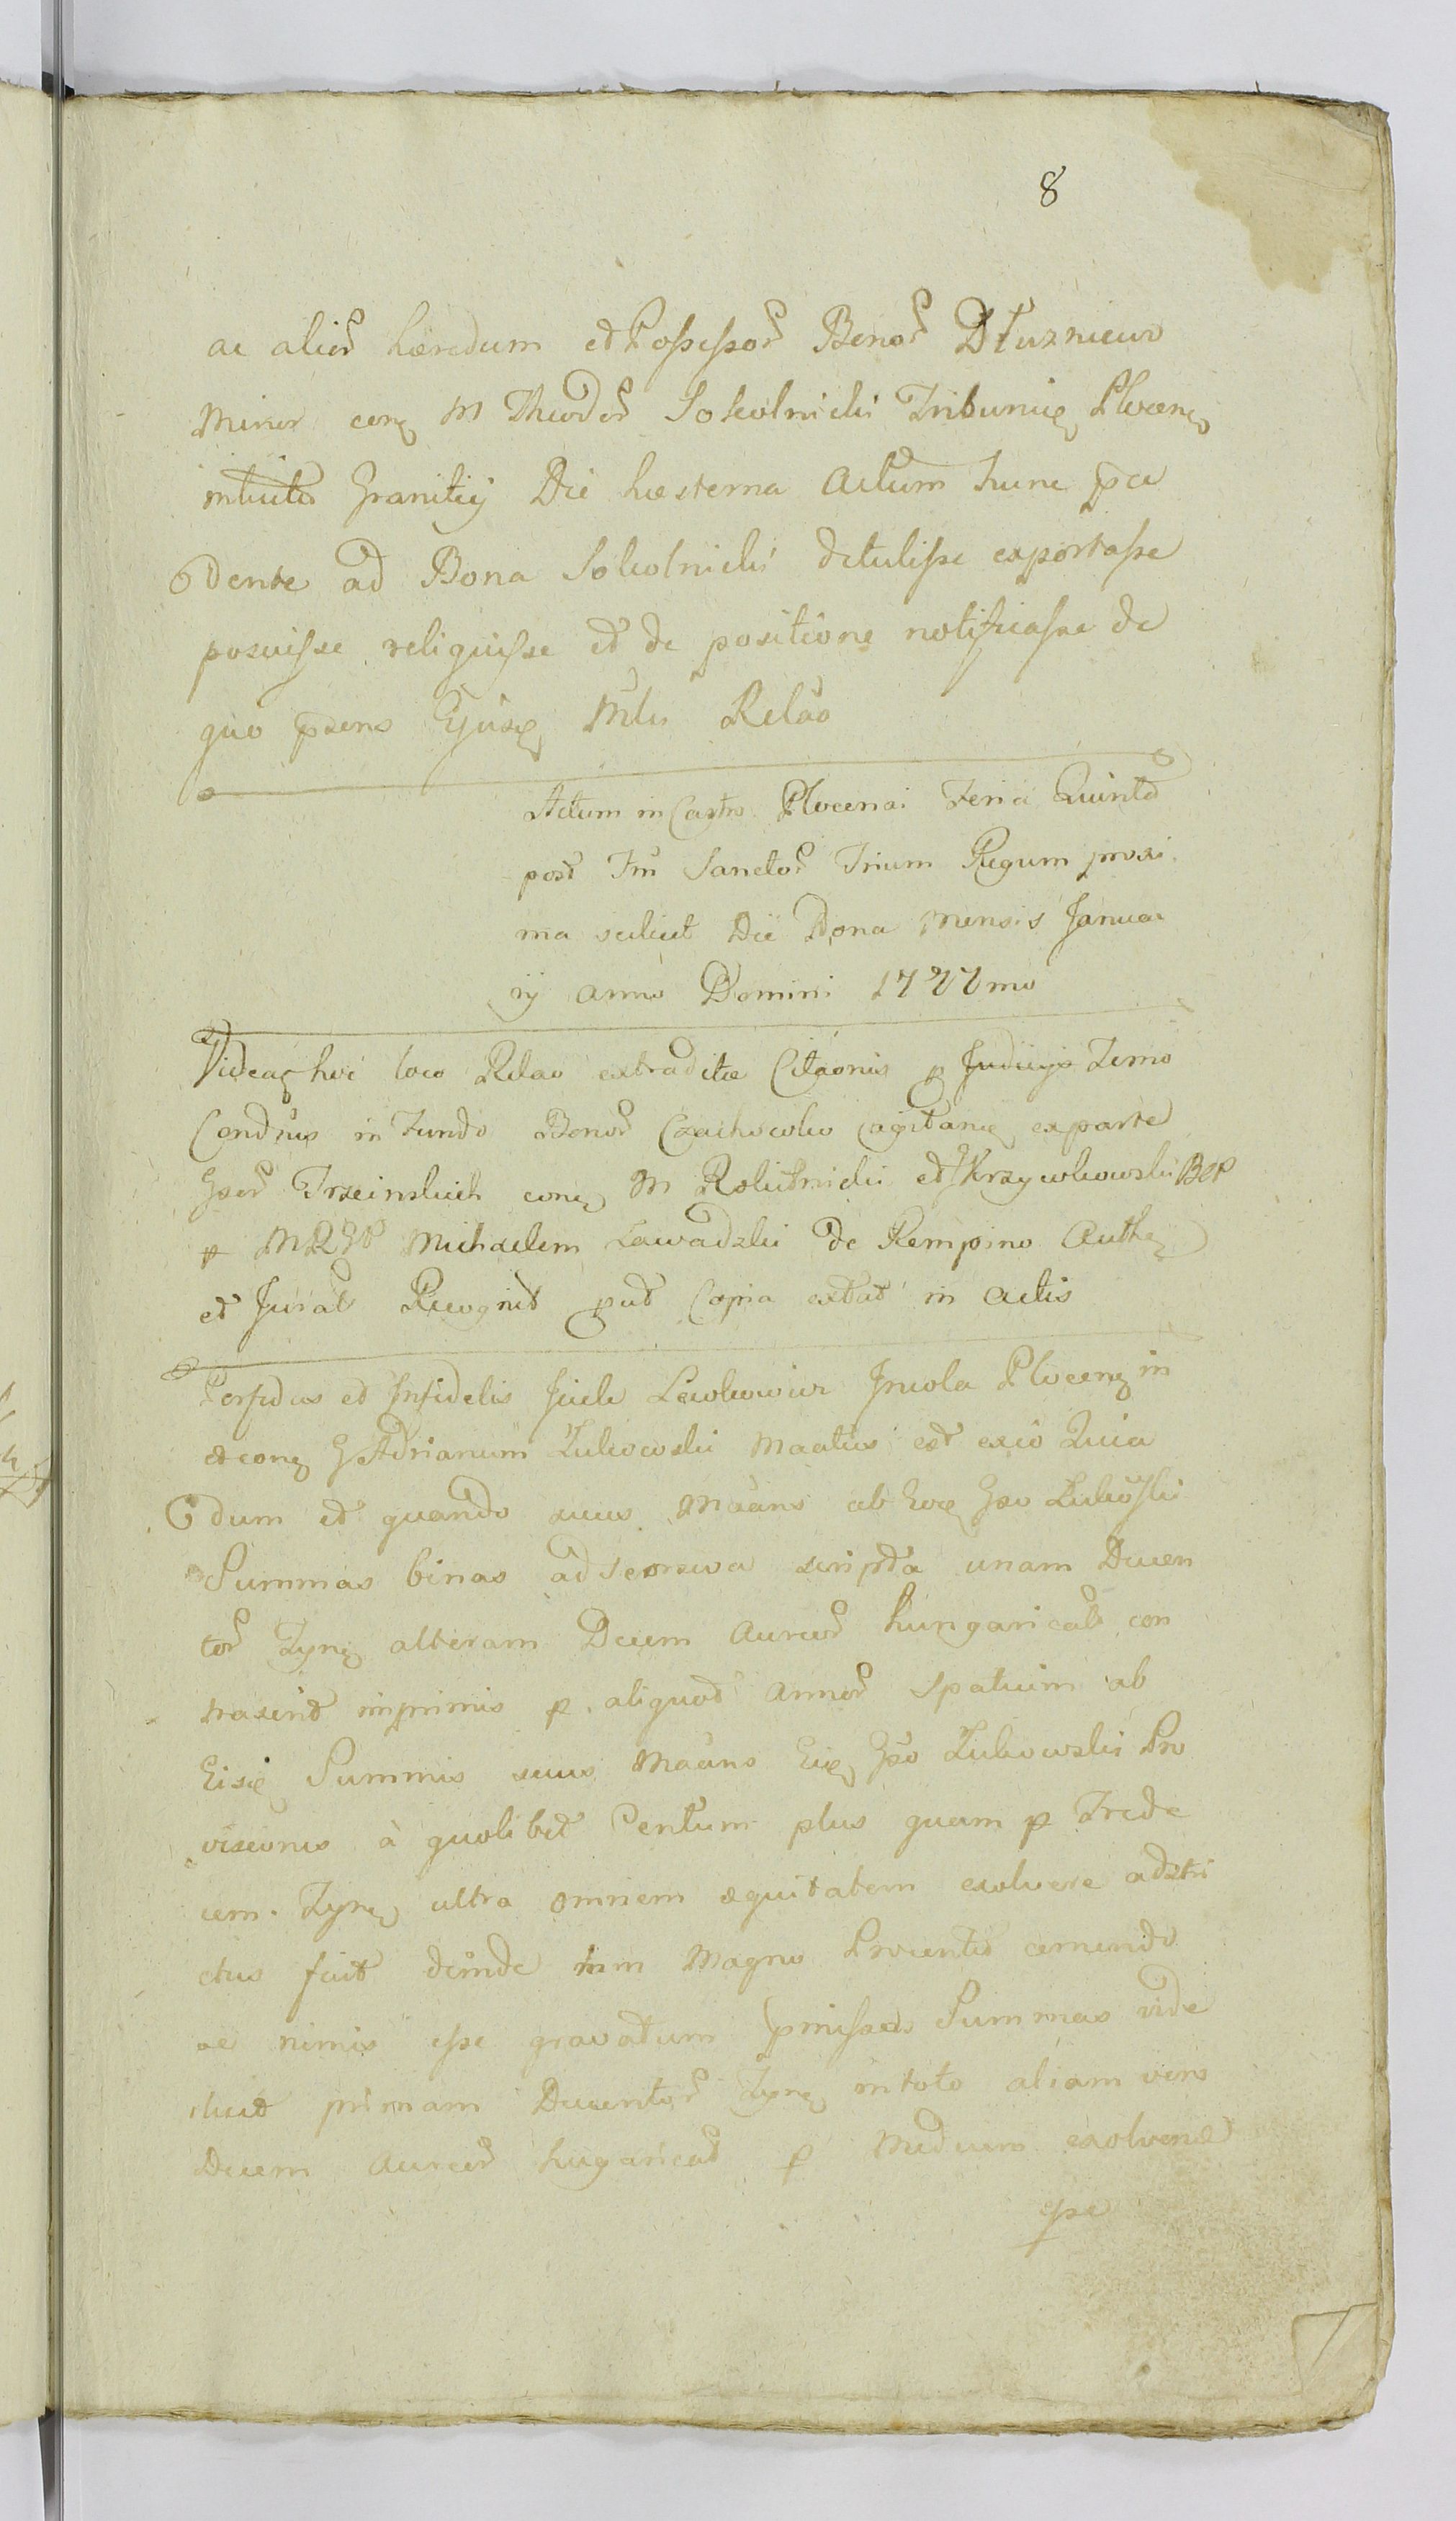 8
ac alior haeredum et Possessor Bonor Dłuzniewo
Minor conq M Theodor Sokolnicki Tribuniq Plocenq
intuitu Granitiy Die hesterna Actum hunc prae
dente ad Bona Sokolnicki detulisse exportasse
posuisse reliquisse et de positione notificasse de
quo pnsens Ejusq Mlis Relao
Actum in Castro Plocensi Feria Quinta
post Fm Sanctor Trium Regum proxi
ma scilicet Die Nona Mensis Janua
rij anno Domini 1777mo
Videaq hoc loco Relao extraditae Citaonis p Judicijs Termo
Condnis in Fundo Bonor Czachowko exparte
Gsor Trzcinskich conq M Rokitnicki et Krzywkowski
p MRGP Michaelem Zawadzki de Rempino Authq
et Jurat Recognit put Copia extat in Actis
Perfidus et Infidelis Jcek Lewkowicz Jncola Plocenq in
et conq G Adrianum Zukowski Maatus est exio Quia
dum et quando suus Maans ab Eoq Gso Zukoski
Summas binas ad seorsiva scripta unam Ducen
tor Tynq alteram Decem Aureor hungarical con
traxerit imprimis p aliquod annor Spatium ab
Eisq Summis suus Maans Eiq Gso Zukowski Pro
visionis à quolibet Centum plus quam p Trede
cem Tynq ultra omnem aequitatem exolvere adstri
ctus fuit deinde Magno Procento cernendo
se nimis esse gravatum pmissas Summas vide
licet primam Ducentor Tynq intoto aliam vero
Decem Aureor hugarical p Medium exolvend
esse